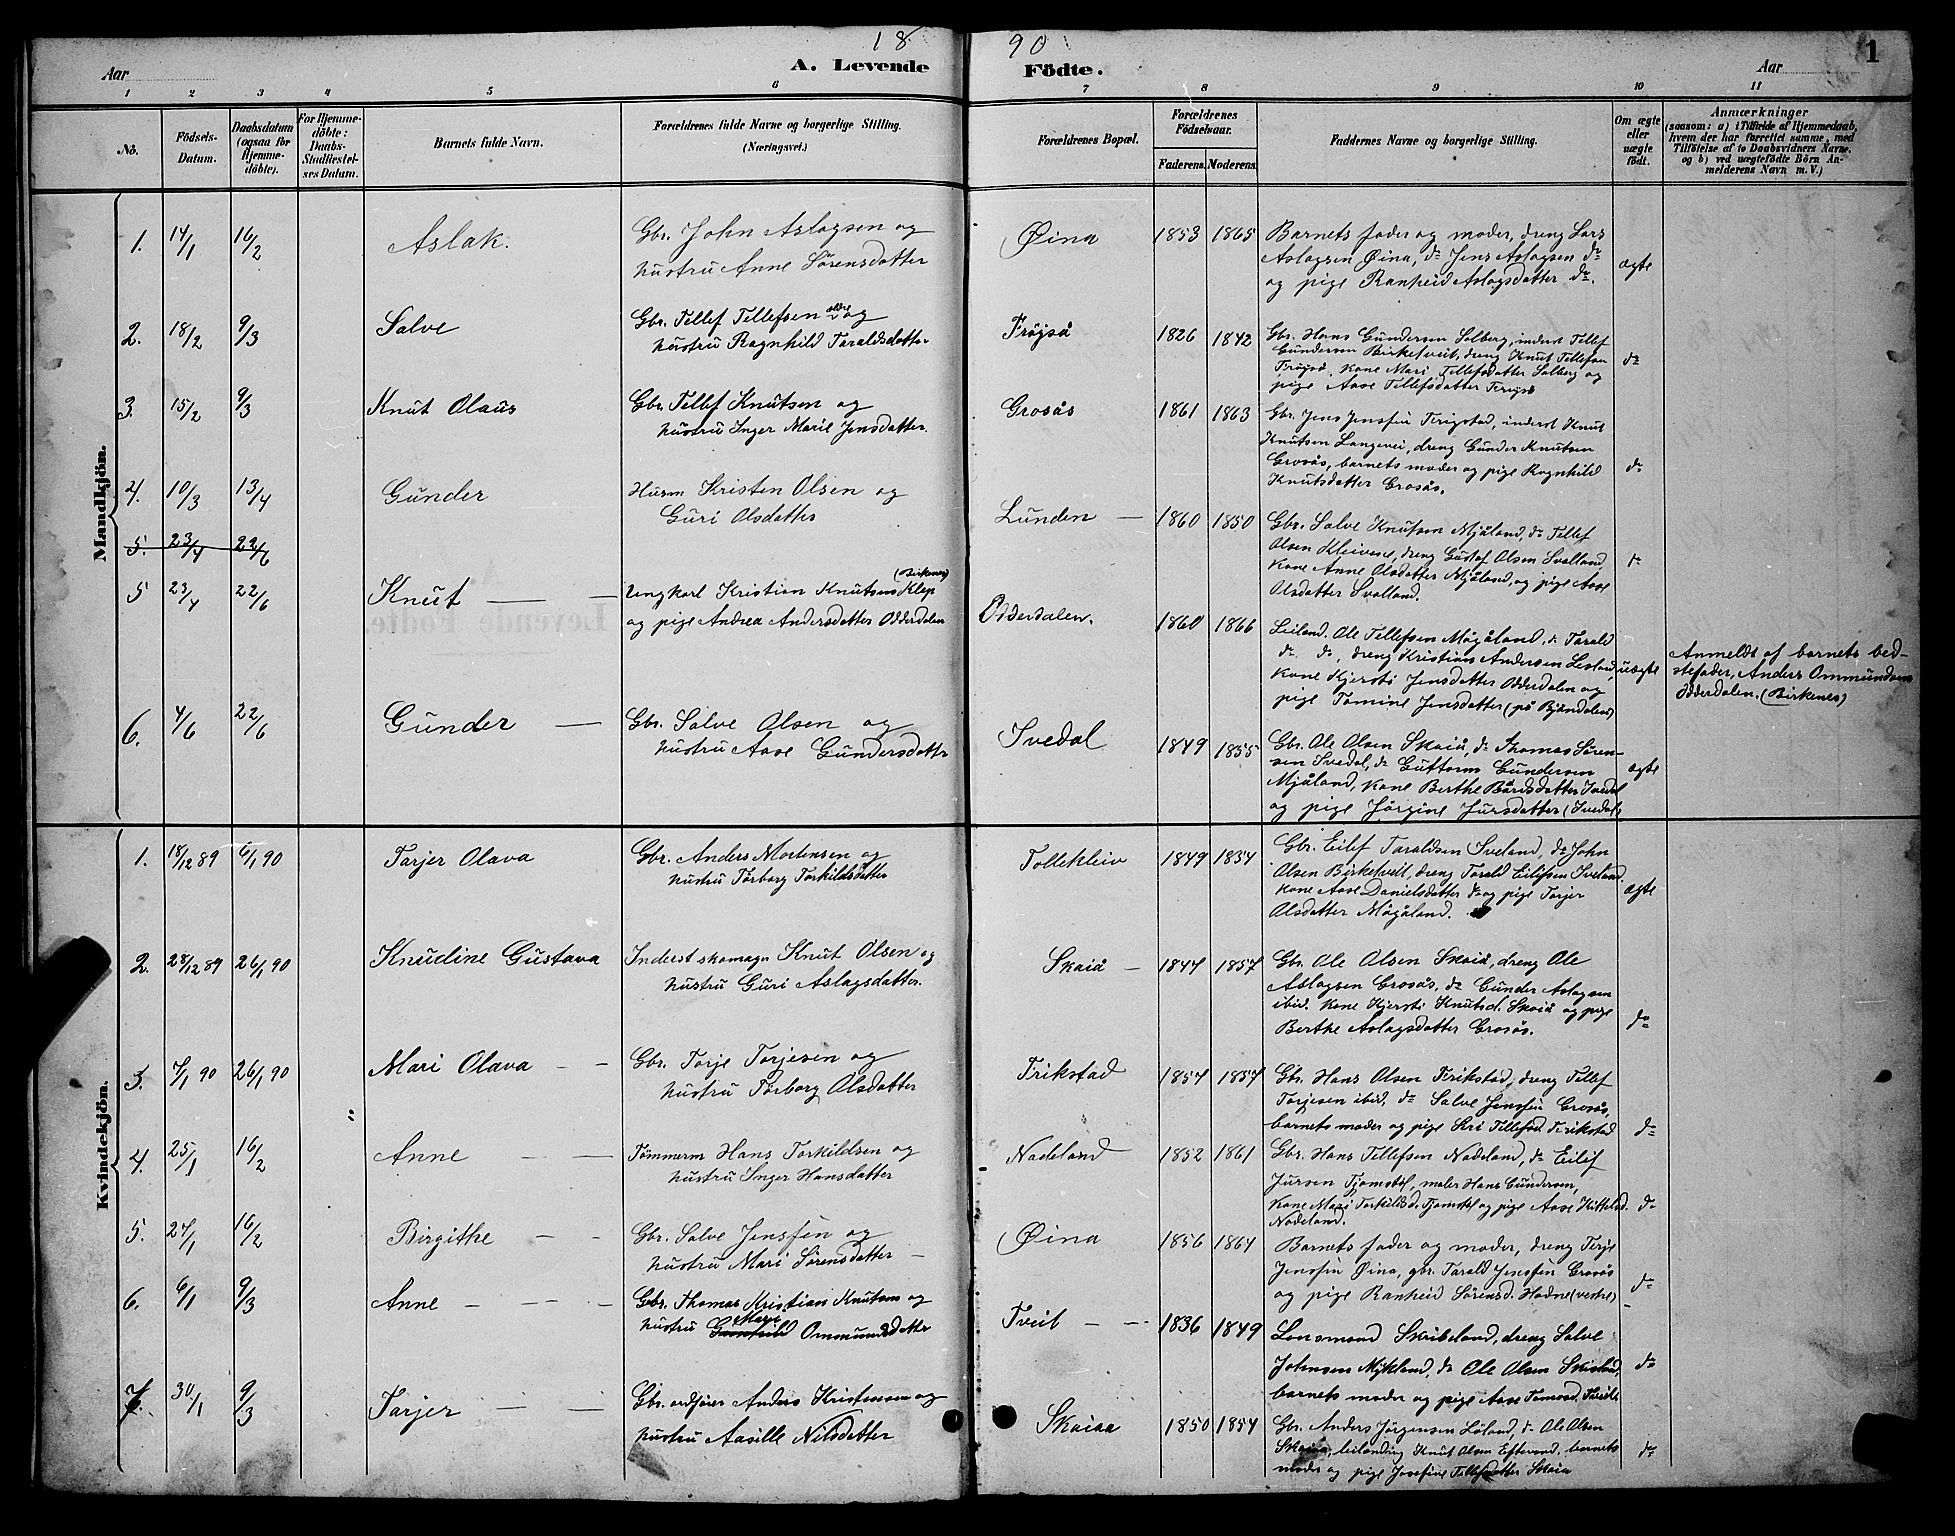 18 90
1
Aar A. Levende Födte. Aar
1 2 3 4 5 6 7 8 9 10 11
No.
Födsels-
Datum.
Daabsdatum
(ogsaa for
Hjemme-
döbte).
For Hjemme-
döbte:
Daabs-
Stadfæstel-
ses Datum.
Barnets fulde Navn.
Forældrenes fulde Navne og borgerlige Stilling.
(Næringsvei.)
Forældrenes Bopæl.
Forældrenes
Födselsaar.
Faderens. Moderens.
Faddernes Navne og borgerlige Stilling.
Om ægte
eller
uægte
födt.
Anmærkninger
(saasom: a) i Tilfælde af Hjemmedaab,
hvem der har forrettet samme, med
Tilföielse af to Daabsvidners Navne,
og b) ved uægtefödte Börn An-
melderens Navn m. V.)
Mandkjön.
1. 14/1 16/2 Aslak.
Gbr. John Aslagsen og
hustru Anne Sørensdatter
Øina 1853 1865
Barnets fader og moder, dreng Lars
Aslagsen Øina, do Jens Aslagsen do
og pige Ranheid Aslagsdatter do.
ægte
2. 18/2 9/3 Salve
Gbr. Tellef Tellefsen og
hustru Ragnhild Taraldsdatter
Frøyså 1826 1842
Gbr. Hans Gundersen Solberg, inderst Tellef
Gundersen Birketveit, dreng Knut Tellefsen
Frøyså, kone Mari Tellefsdatter Solberg og
pige Aase Tellefsdatter Frøyså
do
3. 15/2 9/3 Knut Olaus
Gbr. Tellef Knutsen og
hustru Inger Marie Jensdatter.
Grosås 1861 1863
Gbr. Jens Jenssen Frigstad, inderst Knut
Knutsen Langevei, dreng Gunder Knutsen
Grosås, barnets moder og pige Ragnhild
Knutsdatter Grosås.
do
4. 10/3 13/4 Gunder
Husm Kristen Olsen og
Guri Olsdatter
Lunden 1860 1850
Gbr. Salve Knutsen Mjåland, do Tellef
Olsen Kleivene, dreng Gustaf Olsen Svalland,
kone Anne Olsdatter Mjåland, og pige Aase
Olsdatter Svalland.
do
5. 23/4 22/6
5 23/4 22/6 Knut
Ungkarl Kristian Knutsen Klep (Birkenes)
og pige Andrea Andersdatter Odderdalen
Odderdalen. 1860 1866
Leiland. Ole Tellefsen Møgåland, do Tarald
do do, dreng Kristian Andersen Lesland,
kone Kjersti Jensdatter Odderdalen og
pige Tomine Jensdatter (på Bjøndalen)
uægte
Anmeldt af barnets bed-
stefader, Anders Ommundsen
Odderdalen. (Birkenes)
6. 4/6 22/6 Gunder
Gbr. Salve Olsen og
hustru Aase Gundersdatter
Ivedal 1849 1855
Gbr. Ole Olsen Skaiå, do Thomas Søren-
sen Ivedal, do Guttorm Gundersen
Mjåland, kone Berthe Bårdsdatter Ivedal
og pige Jørgine Jursdatter (Ivedal)
ægte
Kvindekjön.
1. 18/12 89 6/1 90 Torjer Olava
Gbr. Anders Mortensen og
hustru Torborg Torkildsdatter
Tollekleiv 1849 1854
Gbr. Eilef Taraldsen Iveland, do John
Olsen Birketveit, dreng Tarald Eilefsen Iveland,
kone Aase Danielsdatter do og pige Torjer
Olsdatter Møgåland.
ægte
2. 28/12 89 26/1 90 Knudine Gustava
Inderst skomagr Knut Olsen og
hustru Guri Aslagsdatter.
Skaiå 1844 1857
Gbr. Ole Olsen Skaiå, dreng Ole
Aslagsen Grosås, do Gunder Aslagsen
ibid. kone Kjersti Knutsd. Skaiå og pige
Berthe Aslagsdatter Grosås.
do
3. 7/1 90 26/1 90 Mari Olava
Gbr. Torje Torjesen og
hustru Torborg Olsdatter
Frikstad 1854 1857
Gbr. Hans Olsen Frikstad, dreng Tellef
Torjesen ibid, do Salve Jensen Grosås,
barnets moder og pige Siri Tellefsd. Frikstad
do
4. 25/1 16/2 Anne
Tømmerm Hans Torkildsen og
hustru Inger Hansdatter
Nadeland 1852 1861
Gbr. Hans Tellefsen Nadeland, do Eilef
Jursen Tjomstøl, maler Hans Gundersen,
kone Mari Torkildsd. Tjomstøl og pige Aase Kittelsd.
Nadeland.
do
5. 27/1 16/2 Birgithe
Gbr. Salve Jensen og
hustru Mari Sørensdatter
Øina 1856 1864
Barnets fader og moder, dreng Terje
Jensen Øina, gbr. Tarald Jensen Grosås
og pige Ranheid Sørensd. Hodne (vestre)
do
6. 6/1 9/3 Anne
Gbr. Thomas Kristian Knutsen og
hustru Marie Ommundsdatter
Tveit 1836 1849
Lensmand Skribeland, dreng Salve
Johnsen Mykland, do Ole Olsen
barnets moder og pige Aase Tomasd. Tveit
do
7. 30/1 9/3 Torjer
Gbr. ordfører Anders Kristensen og
hustru Aasille Nilsdatter
Skaiaa 1850 1854
Gbr. Anders Jørgensen Løland, do Ole Olsen
Skaiaa, leilænding Knut Olsen Eftevand, barnets
moder og pige Josefine Tellefsdatter Skaia
do